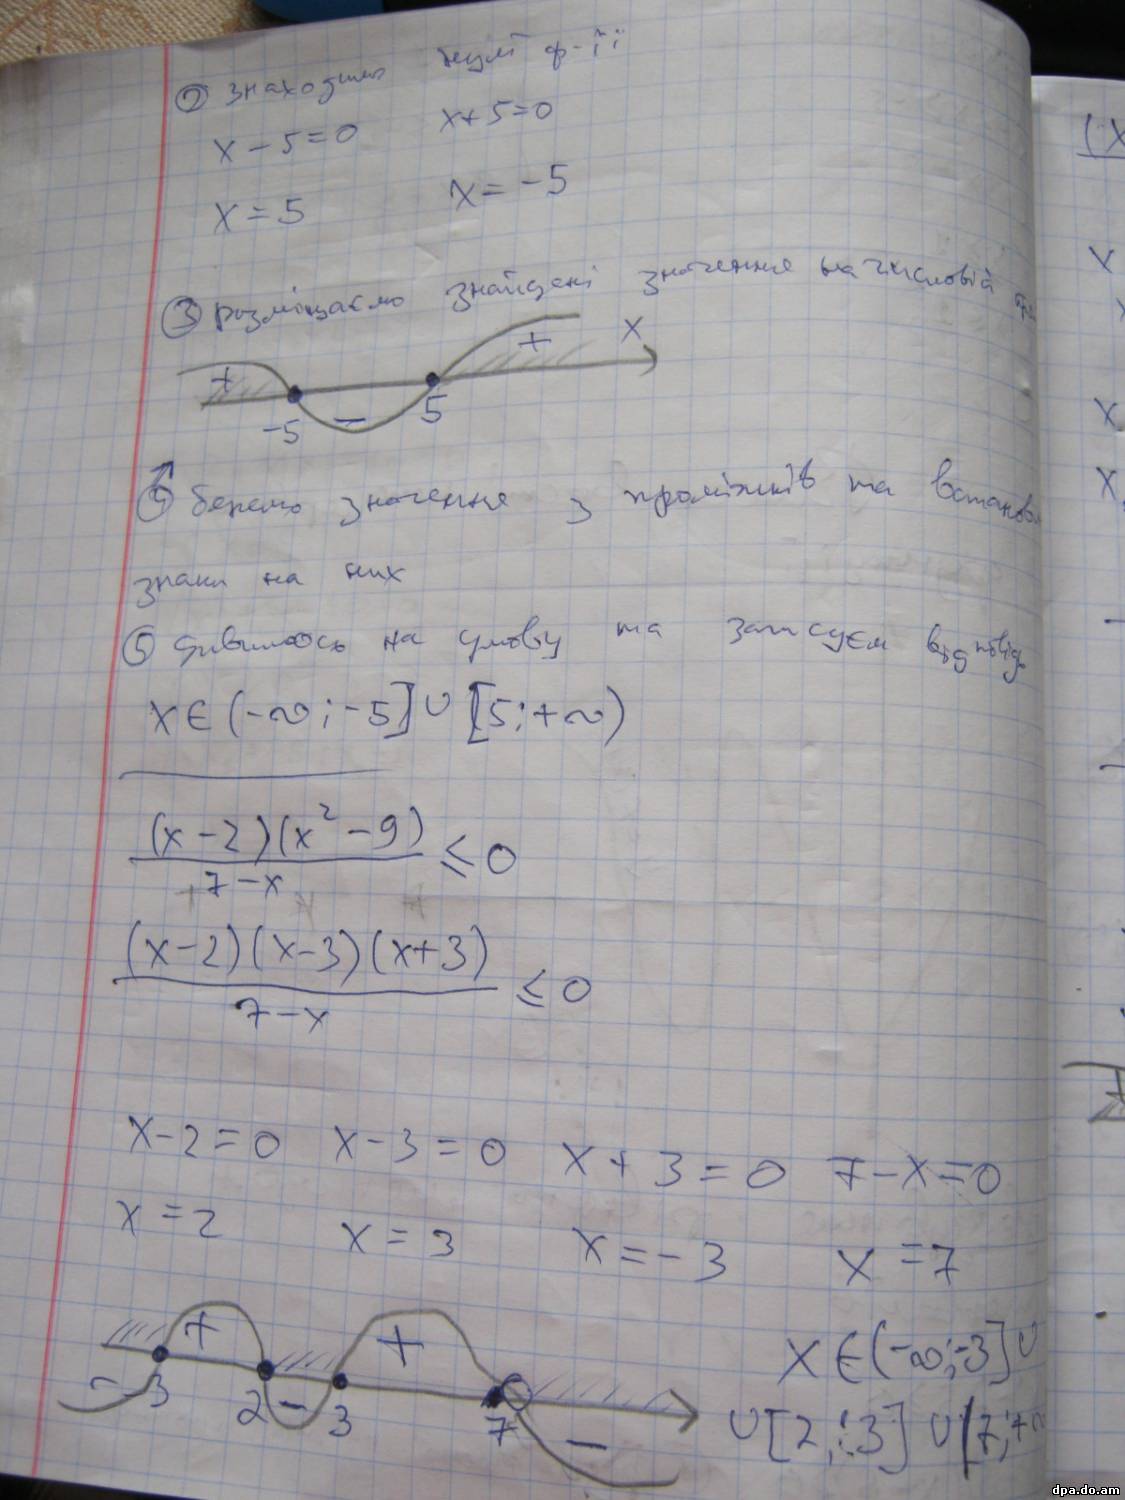 ② знаходимо нулі ф-ії
x-5=0 x+5=0
x=5 x=-5
③ розміщаємо знайдені значення на числовій
+ - + x
-5 5
④ беремо значення з проміжків та встанов
знаки на них
⑤ дивимось на умову та записуєм відповідь
x∈(-∞;-5]∪[5;+∞)
(x-2)(x²-9)/7-x ≤0
(x-2)(x-3)(x+3)/7-x ≤0
x-2=0 x-3=0 x+3=0 7-x=0
x=2 x=3 x=-3 x=7
+ - + -
-3 2 3 7
x∈(-∞;-3]∪
∪[2;3]∪(7;+∞
(x
x
x
x
dpa.do.am